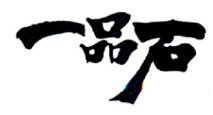 一品石